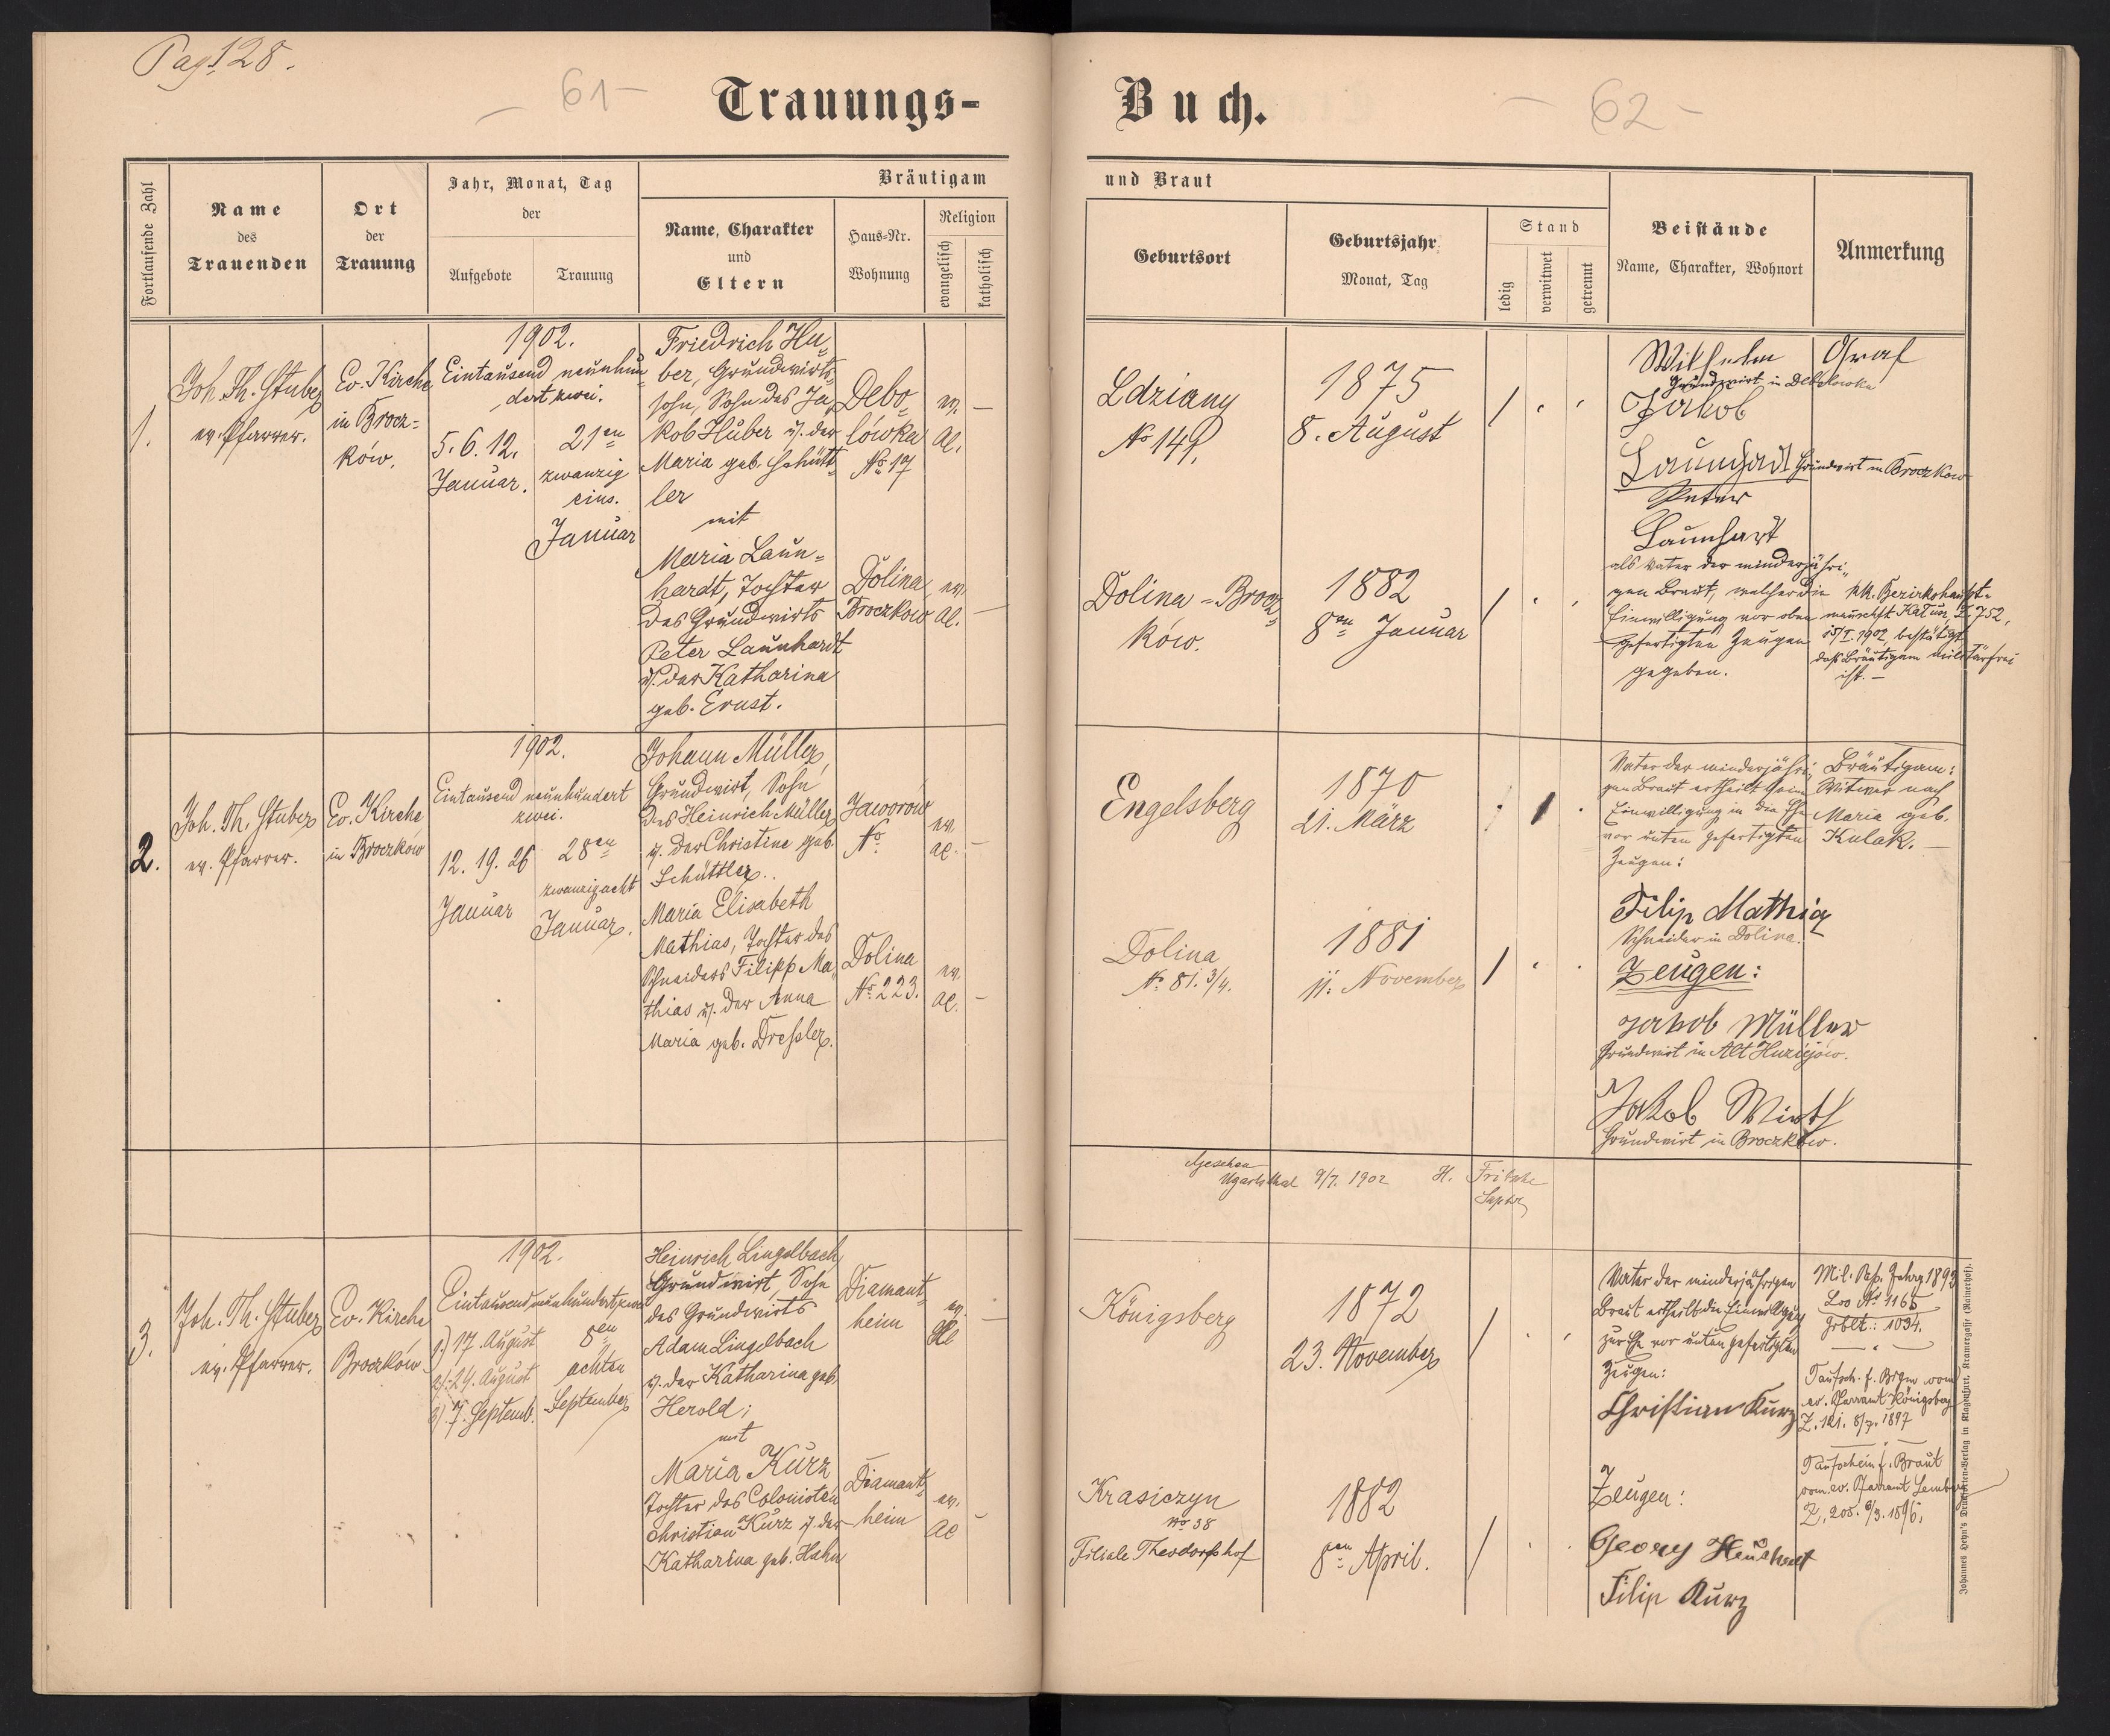 Pag. 128.
– 61 –
Trauungs-
Buch.
– 62 –
Fortlaufende Zahl
Name
des
Trauenden
Ort
der
Trauung
Jahr, Monat, Tag
der
Aufgebote
Trauung
Bräutigam
Name, Charakter
und
Eltern
Haus-Nr.
Wohnung
Religion
evangelisch
katholisch
und Braut
Geburtsort
Geburtsjahr
Monat, Tag
Stand
ledig
verwitwet
getrennt
Beistände
Name, Charakter, Wohnort
Anmerkung
1.
Joh. Th. Stuber
ev. Pfarrer.
Ev. Kirche
in Brocz=
ków.
1902.
Eintausend neunhun
dert zwei.
5. 6. 12.
Januar.
21en
zwanzig
eins.
Januar
Friedrich Hu=
ber, Grundwirts=
sohn, Sohn des Ja=
kob Huber u. der
Maria geb. Schütt=
ler
mit
Maria Laun=
hardt, Tochter
des Grundwirts
Peter Launhardt
u. der Katharina
geb. Ernst.
Debo=
lówka
No 17
ev.
Al.
–
Dolina
Broczkow
ev.
Al.
–
Ldziany
No 149.
1875
8. August
Dolina-Brocz=
ków.
1882
8en Januar
Wilhelm Graf
Grundwirt in Debolówka
Jakob
Launhardt Grundwirt in Broczkow
Peter
Launhart
als Vater der minderjähri=
gen Braut, welcher die
Einwilligung vor oben
gefertigten Zeugen
gegeben.
kk. Bezirkshaupt=
mannschft Kałusz Z. 752,
15/I. 1902, bestätigt
daß Bräutigam militärfrei
ist. –
2.
Joh. Th. Stuber
ev. Pfarrer.
Ev. Kirche
in Broczków
1902.
Eintausend neunhundert
zwei.
12. 19. 26
Januar
28en
zwanzigacht
Januar.
Johann Müller,
Grundwirt, Sohn
des Heinrich Müller
u. der Christine geb.
Schüttler.
Maria Elisabeth
Mathias, Tochter des
Schneiders Filipp Ma=
thias u. der Anna
Maria geb. Dressler.
Jaworów
No.
ev.
al.
–
Dolina
No. 223.
ev.
al.
–
Engelsberg
1870
21. März
Dolina
No. 81. 3/4.
1881
11. November
Vater der minderjähri=
gen Braut ertheilt seine
Einwilligung in die Ehe
vor unten gefertigten
Zeugen:
Filip Mathia
Schneider in Dolina.
Zeugen:
Jakob Müller
Grundwirt in Alt Huziejów.
Jakob Wirth
Grundwirt in Broczków.
Bräutigam:
Witwer nach
Maria geb.
Kulak. –
Gesehen
Ugartsthal 9/7. 1902 H. Fritsche
Suptr
3.
Joh. Th. Stuber
ev. Pfarrer.
Ev. Kirche
Broczków
1902.
Eintausendneunhundertzwei
1) 17. August
2) 24. August
3) 7. Septemb.
8en
achten
September
Heinrich Lingelbach
Grundwirt, Sohn
des Grundwirts
Adam Lingelbach
u. der Katharina geb.
Herold;
mit
Maria Kurz
Tochter des Colonisten
Christian Kurz u. der
Katharina geb. Hahn
Diamant=
heim
ev.
Al
–
Diamant=
heim
ev.
Al
–
Königsberg
1872
23. November
Krasiczyn
No 38
Filiale Theodorshof
1882
8en April.
Vater der minderjährigen
Braut ertheilt die Einwilligung
zur Ehe vor unten gefertigten
Zeugen:
Christian Kurz
Zeugen:
Georg
Filip Kurz
Mil. Paß. Jahrg 1893
Los No 1165
Grblt.: 1034.
Taufsch. f. Brgm vom
ev. Pfarramt Königsberg
Z. 121. 8/7. 1897
Taufschein f. Braut
vom ev. Pfarramt Lemberg
Z. 205. 9/3. 1896.
Johannes Heyn's Drucksorten-Verlag in Klagenfurt, Kramergasse (Rainerhof).